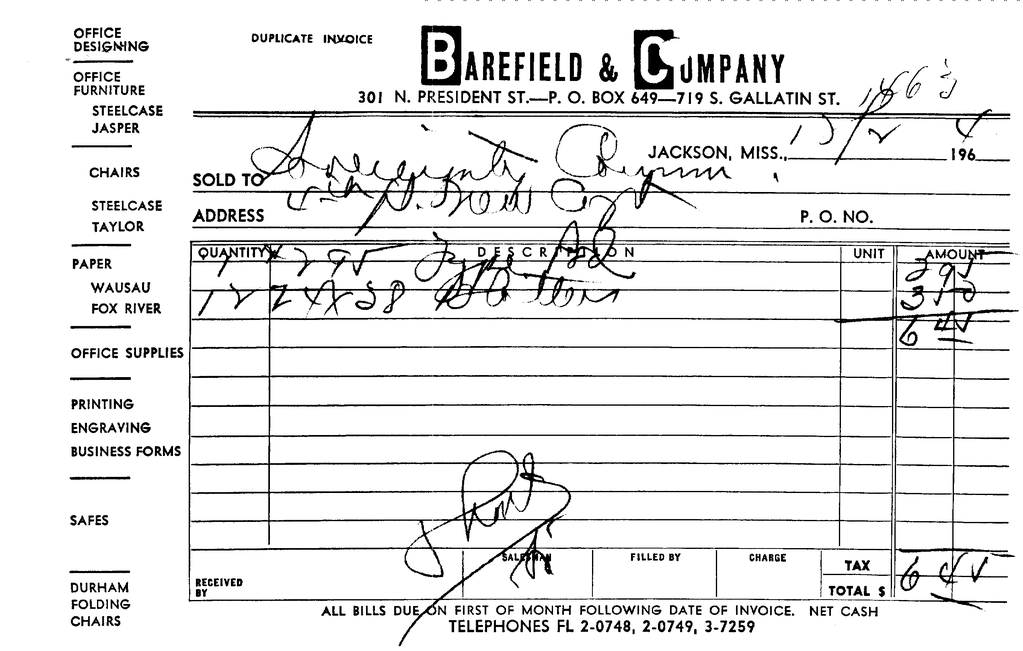 OFFICE
DESIGNING
OFFICE
FURNITURE
STEELCASE
JASPER
CHAIRS
STEELCASE
TAYLOR
PAPER
WAUSAU
FOX RIVER
OFFICE SUPPLIES
PRINTING
ENGRAVING
BUSINESS FORMS
SAFES
DURHAM
FOLDING
CHAIRS
DUPLICATE INVOICE
BAREFIELD & COMPANY
301 N. PRESIDENT ST.—P. O. BOX 649—719 S. GALLATIN ST.
JACKSON, MISS., 196 4
SOLD TO Sovereignty Comm.
ADDRESS P. O. NO.
QUANTITY DESCRIPTION UNIT AMOUNT
1 295 2 95
12 24X38 3 50
6 45
RECEIVED BY SALESMAN FILLED BY CHARGE TAX
TOTAL $ 6 45
ALL BILLS DUE ON FIRST OF MONTH FOLLOWING DATE OF INVOICE. NET CASH
TELEPHONES FL 2-0748, 2-0749, 3-7259